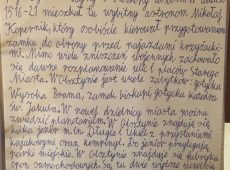 1516-21 mieszkał tu wybitny astronom Mikołaj
Kopernik, który osobiście kierował przygotowaniem
zamku do obrony przed najazdami krzyżacki-
mi. Mimo wielu zniszczeń wojennych zachowało
się dawne rozplanowanie ulic i placów Starego
Miasta. W Olsztynie jest wiele zabytków: gotycka
Wysoka Brama, zamek biskupi, gotycka katedra
św. Jakuba. W nowej dzielnicy miasta można
zwiedzić planetarium. W Olsztynie znajduje się
kilka jezior m.in. Długie i Ukiel z przystaniami
kajakowymi oraz kempingi. Do jezior przylegają
parki miejskie. W Olsztynie znajduje się fabryka
opon samochodowych. Są tu dwie wyższe uczelnie